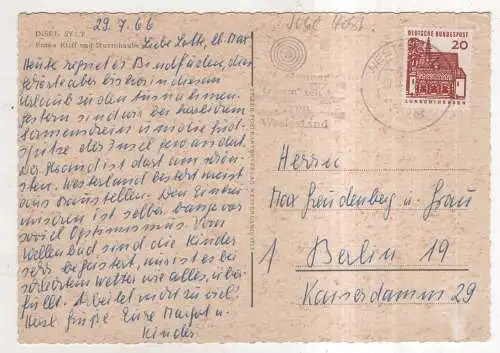 29.7.66
INSEL SYLT
Rotes Kliff mit Sturmhaube
Liebe Lotte, lb. Max
Heute regnet es Bindfäden, das
gehörte aber bisher in diesem
Urlaub zu den Ausnahmen.
Gestern sind wir bei herrlichem
Sonnenschein um die Süd-
spitze der Insel gewandert.
Der Strand ist dort am schön-
sten. Westerland besteht meist
aus Baustellen. Den Einwoh-
ist selber bange vor
soviel Optimismus. Vom
Wellenbad sind die Kinder
sehr begeistert, nur ist es bei
schlechtem Wetter wie alles, über-
füllt. Arbeitet nicht zu viel!
Herzl. Grüße Eure Margot u.
Kinder
DEUTSCHE BUNDESPOST
20
LORSCH/HESSEN
Westerland
Herrn
Max Freudenberg u. Frau
1 Berlin 19
Kaiserdamm 29